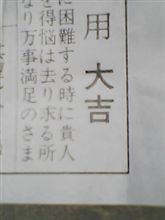 用 大吉
に困難する時に貴人
を得悩は去り求る所
なり万事満足のさま